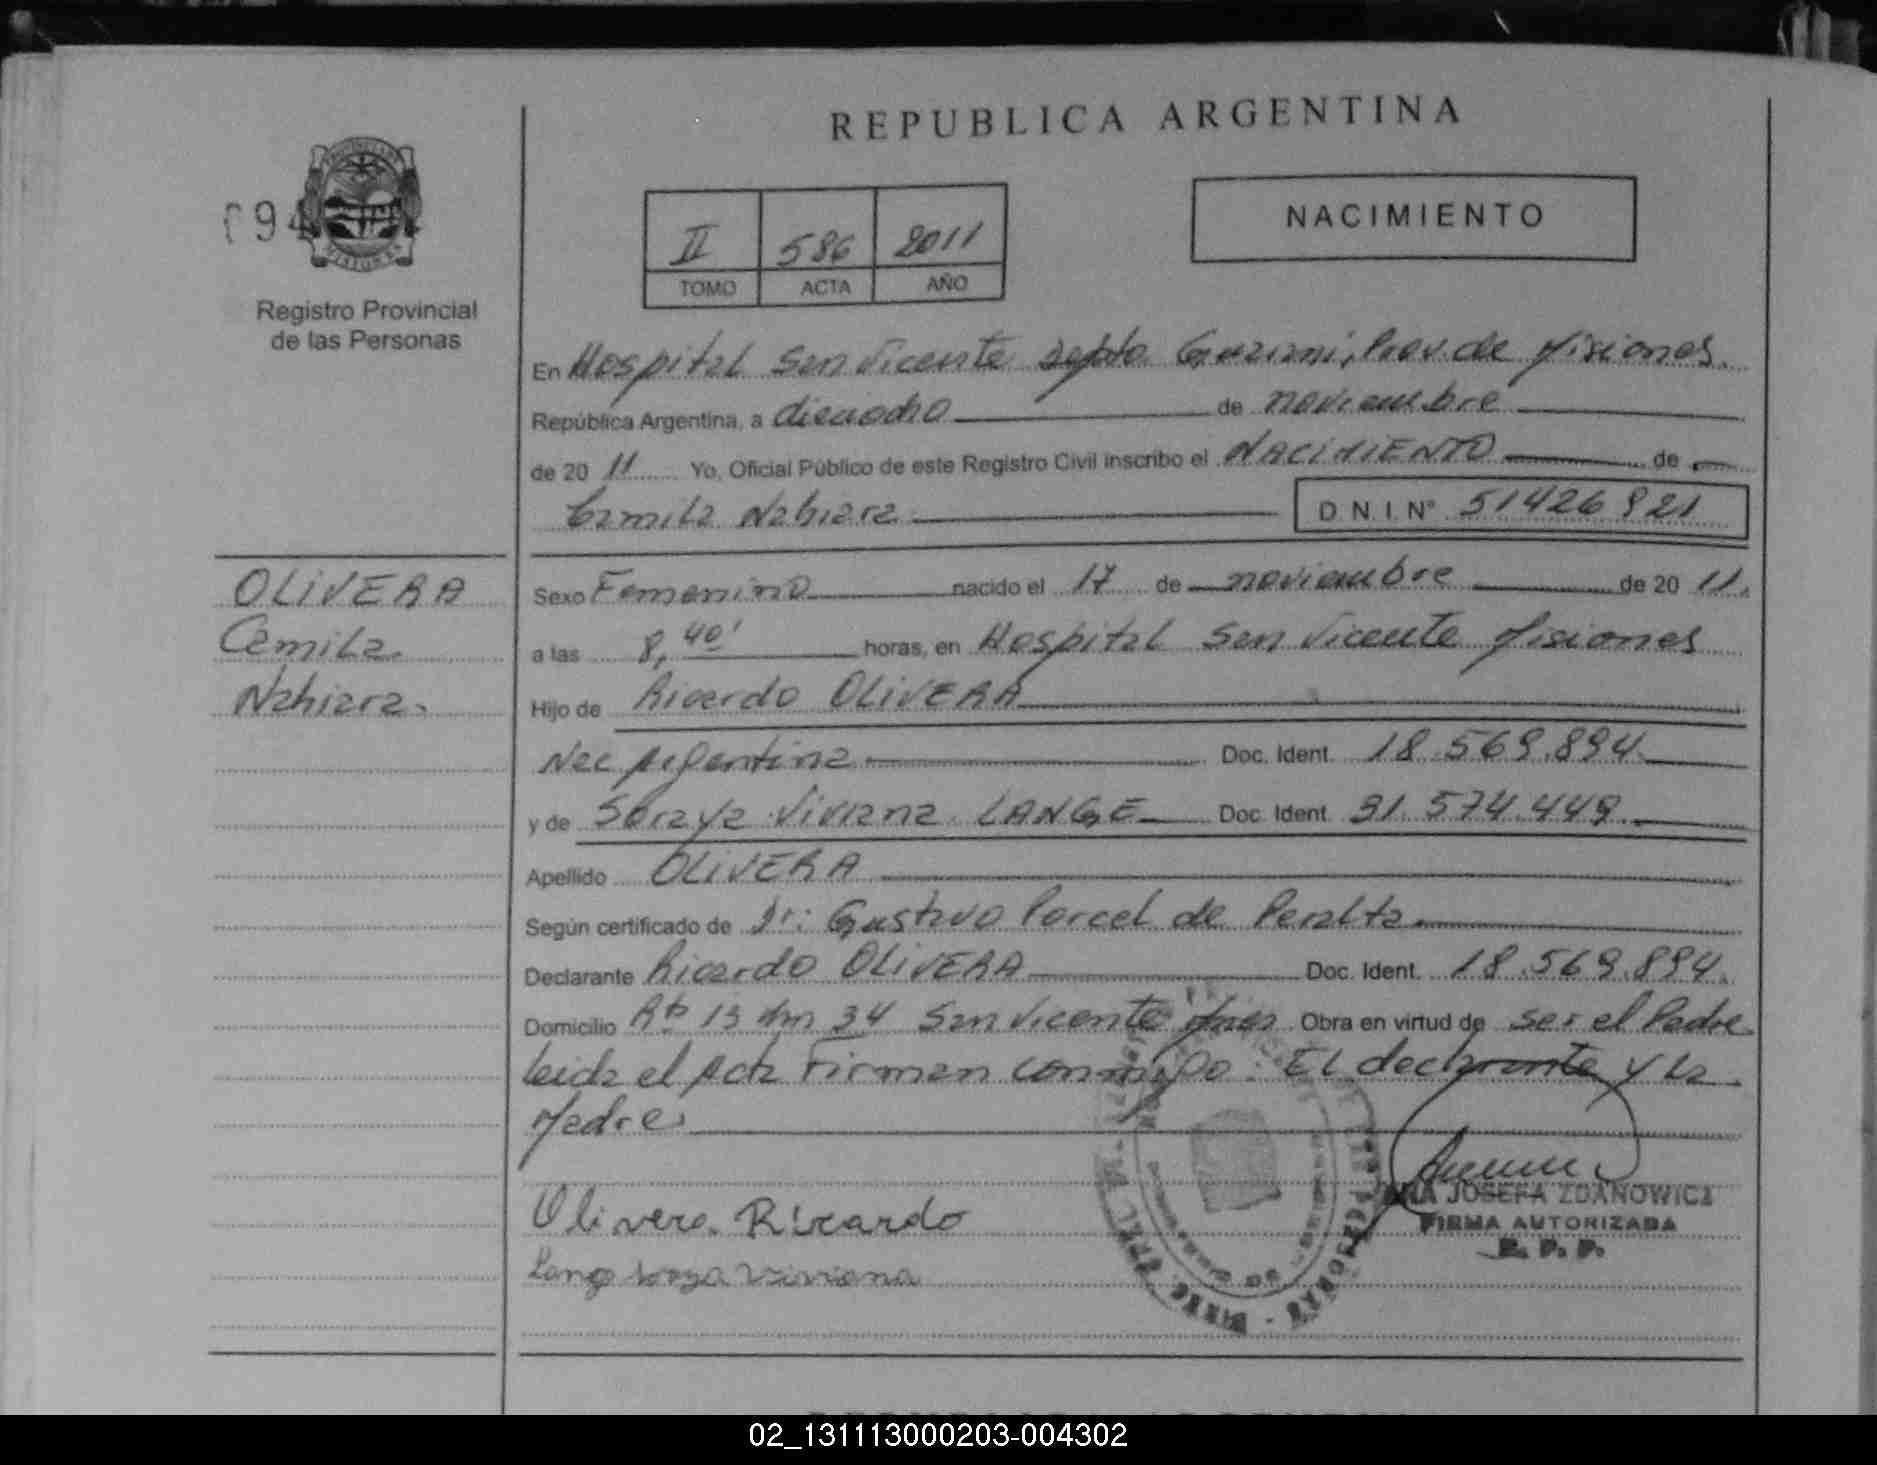 REPUBLICA ARGENTINA
094
Registro Provincial
de las Personas
II 586 2011
TOMO ACTA AÑO
NACIMIENTO
En Hospital San Vicente Depto Guarani, Prov. de Misiones.
República Argentina, a dieciocho de noviembre
de 20 11 Yo, Oficial Público de este Registro Civil inscribo el NACIMIENTO de
Camila Nahiara D.N.I. Nº 51426921
OLIVERA
Camila
Nahiara.
Sexo Femenino nacido el 17 de noviembre de 20 11.
a las 8,40' horas, en Hospital San Vicente Misiones
Hijo de Ricardo OLIVERA
Nac Argentina Doc. Ident. 18.569.894
y de Soraya Viviana LANGE Doc. Ident. 31.574.449.
Apellido OLIVERA
Según certificado de Dr: Gustavo Porcel de Peralta
Declarante Ricardo OLIVERA Doc. Ident. 18.569.894.
Domicilio Rta 13 Km 34 San Vicente Mnes Obra en virtud de ser el Padre
Leida el Acta Firman conmigo: El declarante y La
Madre
Olivera Ricardo
ANA JOSEFA ZDANOWICZ
FIRMA AUTORIZADA
R. P. P.
02_131113000203-004302